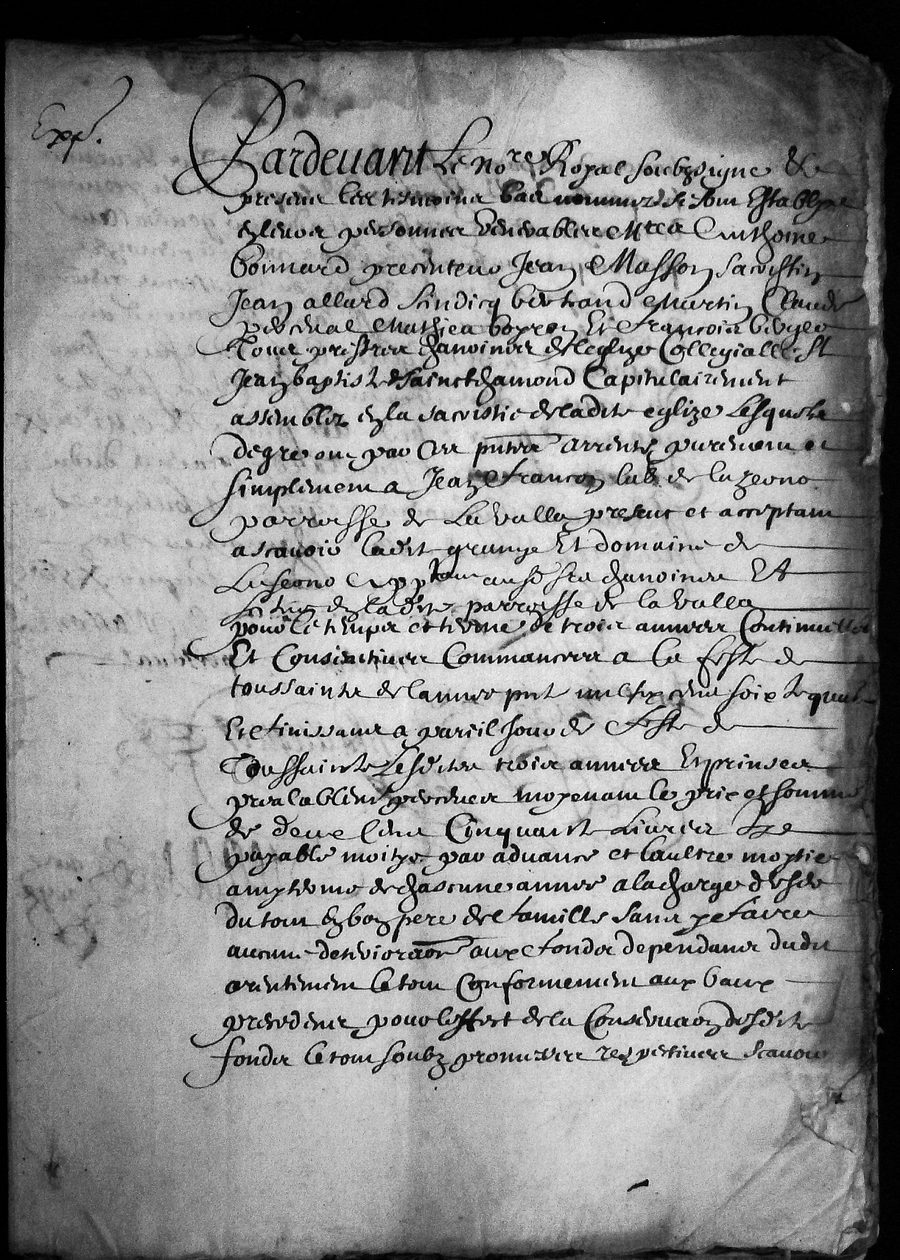 Expé.
Pardevant Le nore Royal soubzsigne &
presens les tesmoins bas nommes se sont Establys
en leurs personnes Venerables Mres Anthoine
bonnard precenteur Jean Masson sacristin
Jean allard scindicq bertrand Martin Claude
perceval Mathieu boyron Et francois
Tous prestres chanoines de leglize Collegialle St
Jean baptiste de Sainct chamond Capitulairement
assembles en la sacristie de ladite eglize Lesquels
degre ont par Ces pntes arrente purement et
simplement a Jean francon lab de luzeono
parroisse de La valla present et acceptant
a scavoir ladit grange Et domaine de
Luseono appten ausd srs chanoines Et
scitue en lad parroisse de la valla
pour le temps et terme de trois annees Continuelles
Et Consecutives Commancees a la feste de
toussaincts de lannee pnt mil six cens soix te quat
Et finissant a pareil jour de feste de
Toussaincts Lesdites trois annees Et prinses
prealablemt perceues moyenant le prix et somme
de deux Cens Cinquante Livres
payable moitye par advance et laultre moytie
a my terme de chascune annee a la charge duser
du tout en bon pere de famille sans y faire
aucune deterioraon aux fonds dependans dudit
arentement le tout Conformement aux baux
precedens pour leffect de la Conservaon desdits
fonds le tout soubz promesses respectives scavoir